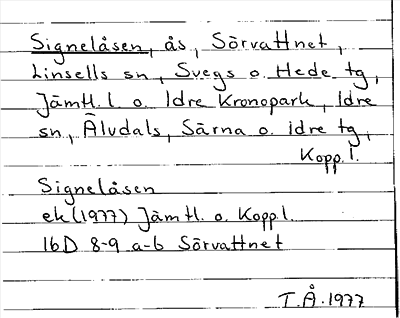 Signelåsen, ås, Sörvattnet,
Linsells sn, Svegs o. Hede tg,
Jämtl. l. o. Idre Kronopark, Idre
sn, Älvdals, Särna o. Idre tg,
Kopp. l.
Signelåsen
ek (1977) Jämtl. o. Kopp l.
16D 8-9 a-b Sörvattnet
T.Å. 1977